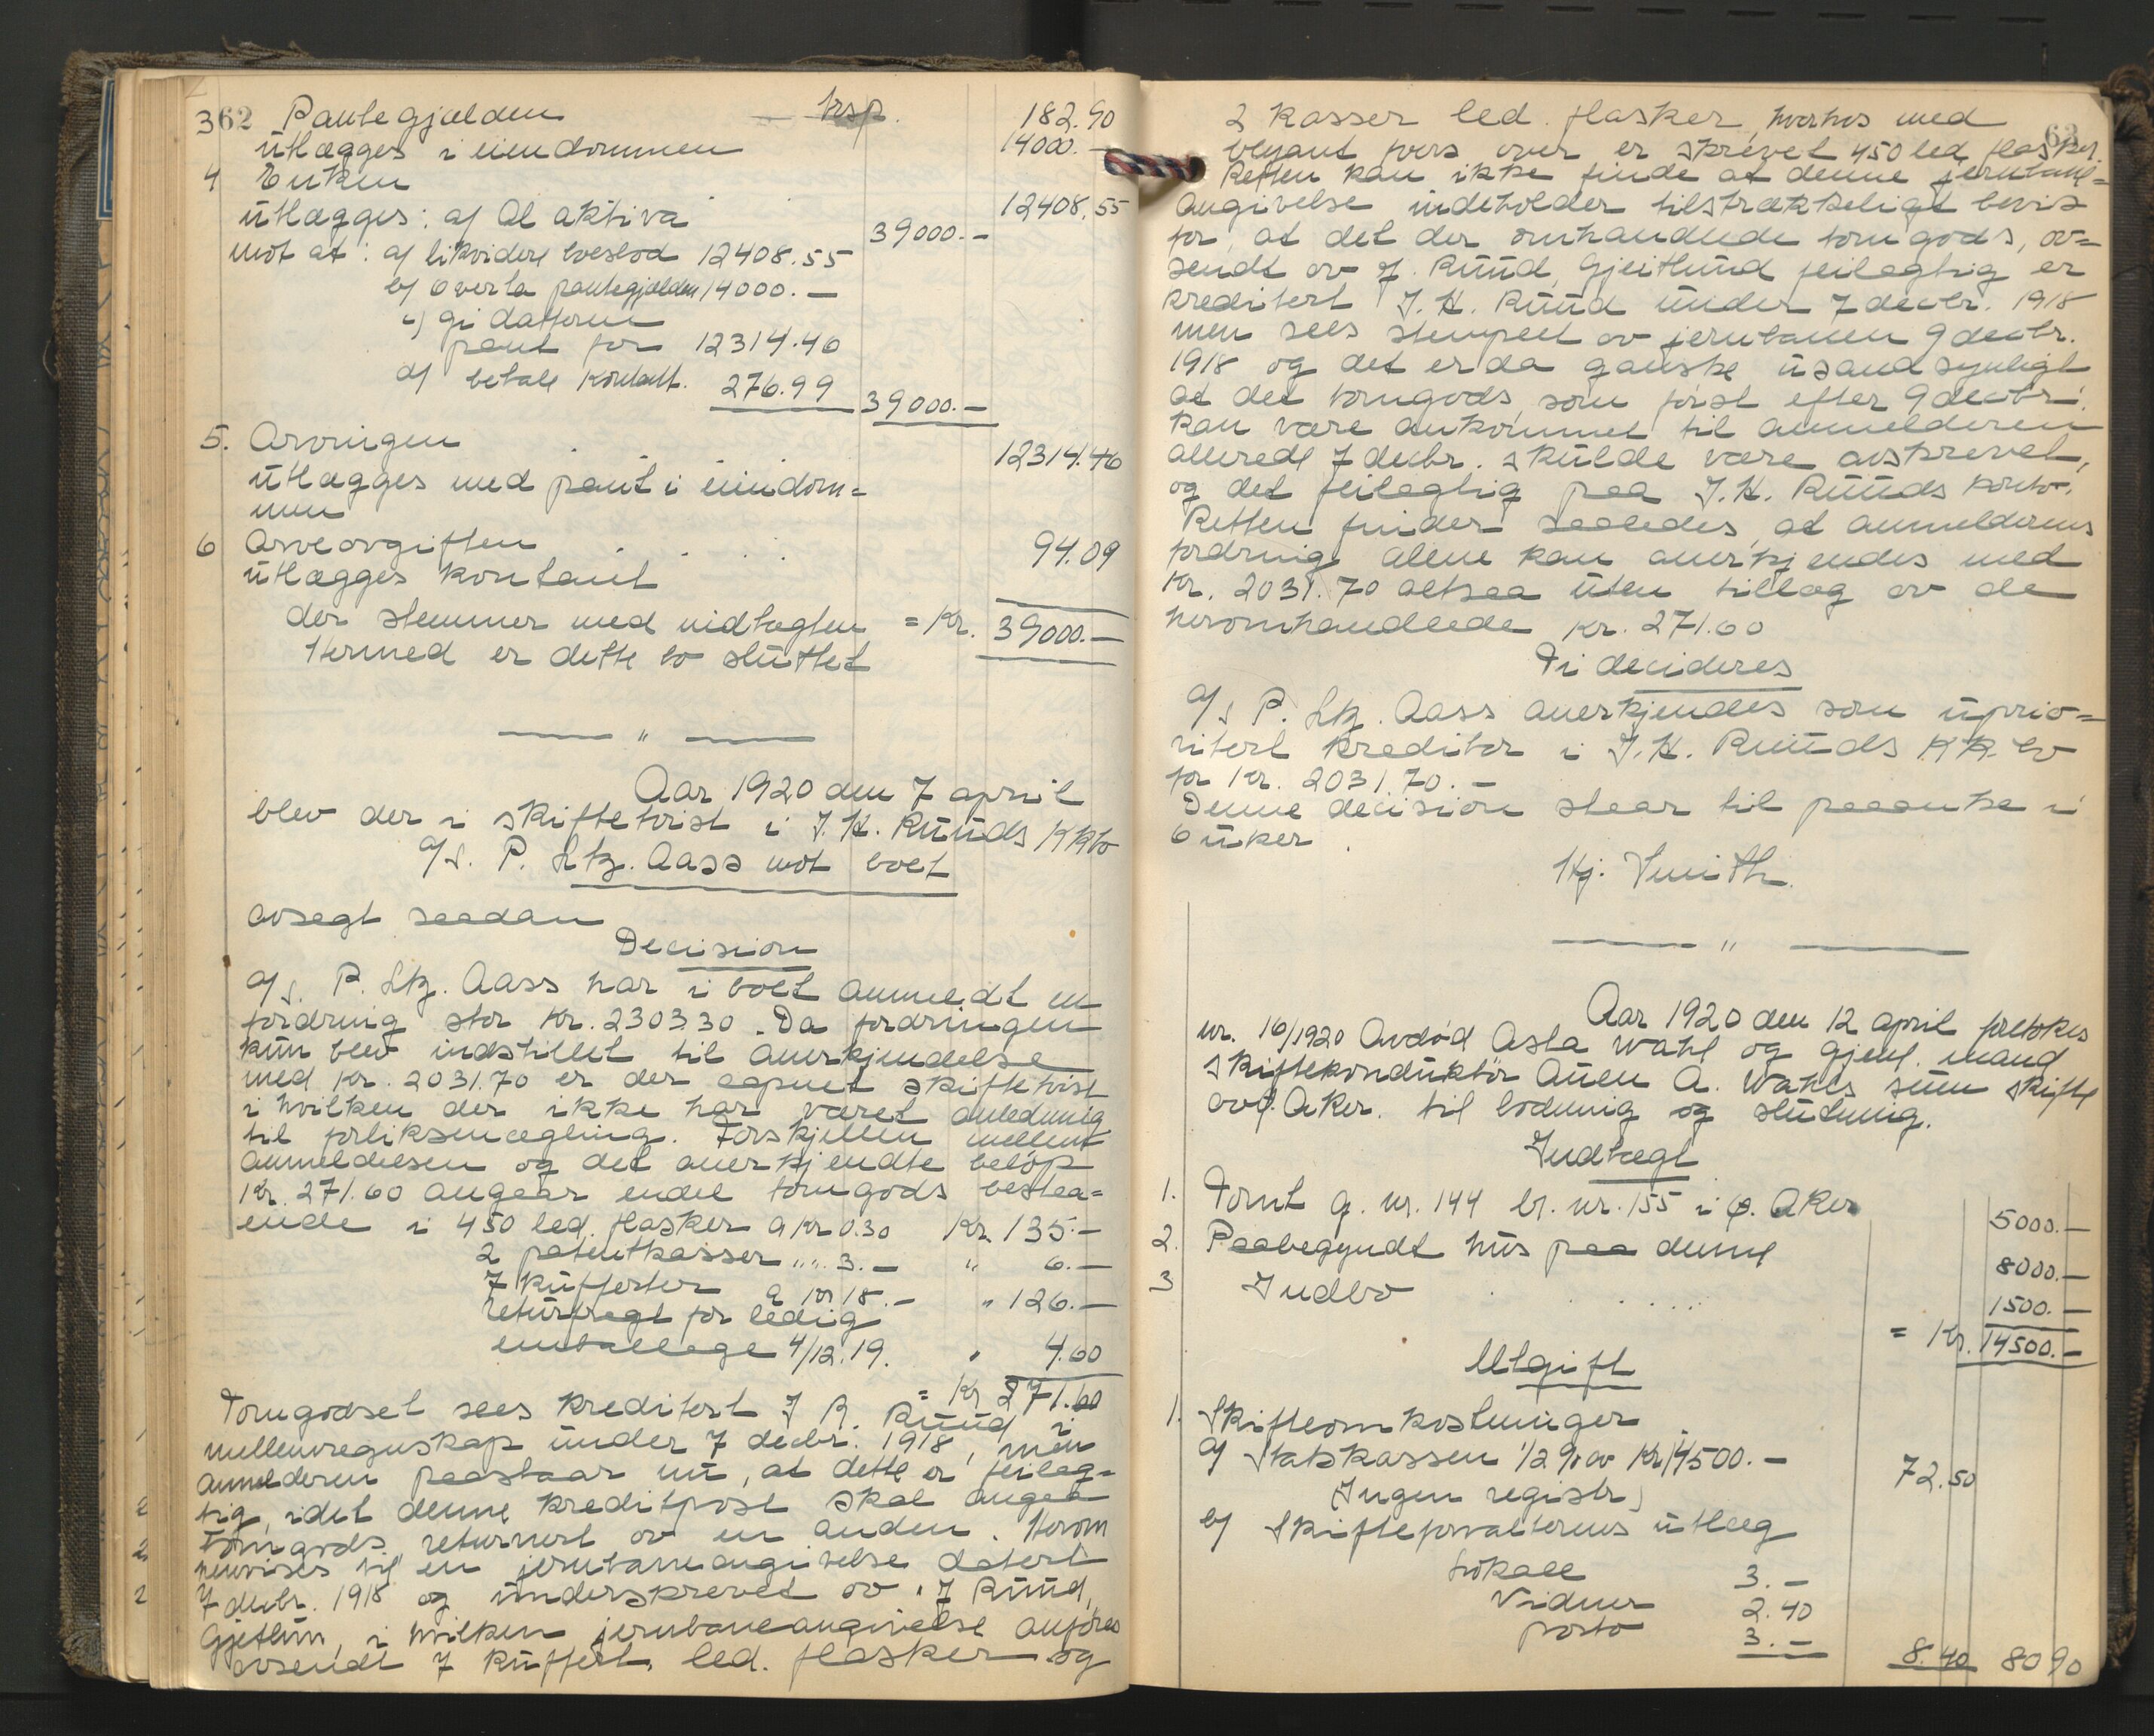 362 Pantegjælden trsp. 182.90
utlægges i eiendommen 14000.—
4 Enken 12408.55
utlægges: a) Al aktiva 39000.—
mot at: a) likvidere boeslod 12408.55
b) overta pantegjælden 14000.—
c) gi datteren
pant for 12314.46
d) betale kontant. 276.99 39000.—
5. Arvingen 12314.46
utlægges med pant i eiendom=
men
6 Arveavgiften 94.09
utlægges kontant
der stemmer med indtægten = Kr. 39000.—
Hermed er dette bo sluttet
— " —
Aar 1920 den 7 april
blev der i skiftetvist i J. H. Ruuds KKbo
A/S. P. Ltz. Aass mot boet
avsagt saadan
Decision
A/S. P. Ltz. Aass har i boet anmeldt en
fordring stor Kr. 2303.30. Da fordringen
kun blev indstillet til anerkjendelse
med Kr. 2031.70 er der aapnet skiftetvist
i hvilken der ikke har været anledning
til forliksmægling. Forskjellen mellem
anmeldelsen og det anerkjendte beløp
Kr. 271.60 angaar endel tomgods bestaa=
ende i 450 led. flasker a Kr 0.30 Kr. 135.—
2 patentkasser " " 3.— " 6.—
7 kufferter a Kr 18.— " 126.—
returfragt for ledig
emballage 4/12.19. " 4.60
= Kr 271.60
Tomgodset sees kreditert J. R. Ruud i
mellemregnskap under 7 decbr. 1918, men
anmelderen paastaar nu, at dette er feilag=
tig, idet denne kreditpost skal angaa
Tomgods returnert av en anden. Herom
henvises til en jernbaneangivelse datert
7 decbr. 1918 og underskrevet av "J Ruud,
Gjetlun, i hvilken jernbaneangivelse anføres
avsendt 7 kuffert. led. flasker og
2 kasser led. flasker, hvorhos med
63
blyant tvers over er skrevet 450 led flasker.
Retten kan ikke finde at denne jernbane=
angivelse indeholder tilstrækkeligt bevis
for, at det der omhandlede tomgods, av=
sendt av J. Ruud, Gjeitlund feilagtig er
kreditert J. H. Ruud under 7 decbr. 1918
men sees stemplet av jernbanen 9 decbr.
1918 og det er da ganske usandsynligt
at det tomgods, som først efter 9 decbr.
kan være ankommet til anmelderen
allerede 7 decbr. skulde være avskrevet,
og det feilagtig paa J. H. Ruuds konto.
Retten finder saaledes, at anmelderens
fordring alene kan anerkjendes med
Kr. 2031.70 altsaa uten tillæg av de
heromhandlede Kr. 271.60
Ti decideres
A/S P. Ltz. Aass anerkjendes som uprio=
ritert kreditor i J. H. Ruuds KK. bo
for Kr. 2031.70.—
Denne decision staar til paaanke i
6 uker.
Hj. Smith.
— " —
Aar 1920 den 12 april foretokes
nr. 16/1920 Avdød Asta Wahl og gjenl. mand
skiftekonduktør Allen A. Wahls sum skifte
avd. Aker. til lodning og slutning.
Indtægt
1. Tomt g. nr. 144 br. nr. 155 i Ø. Aker 5000.—
2. Paabegyndt hus paa denne 8000.—
3 Indbo 1500.—
= Kr. 14500.—
Utgift
1. Skifteomkostninger
a) Statskassen 1/2 % av Kr 14500.— 72.50
(Ingen registr)
b) Skifteforvalterens utlæg
Lokale 3.—
Vidner 2.40
porto 3.— 8.40 80 90